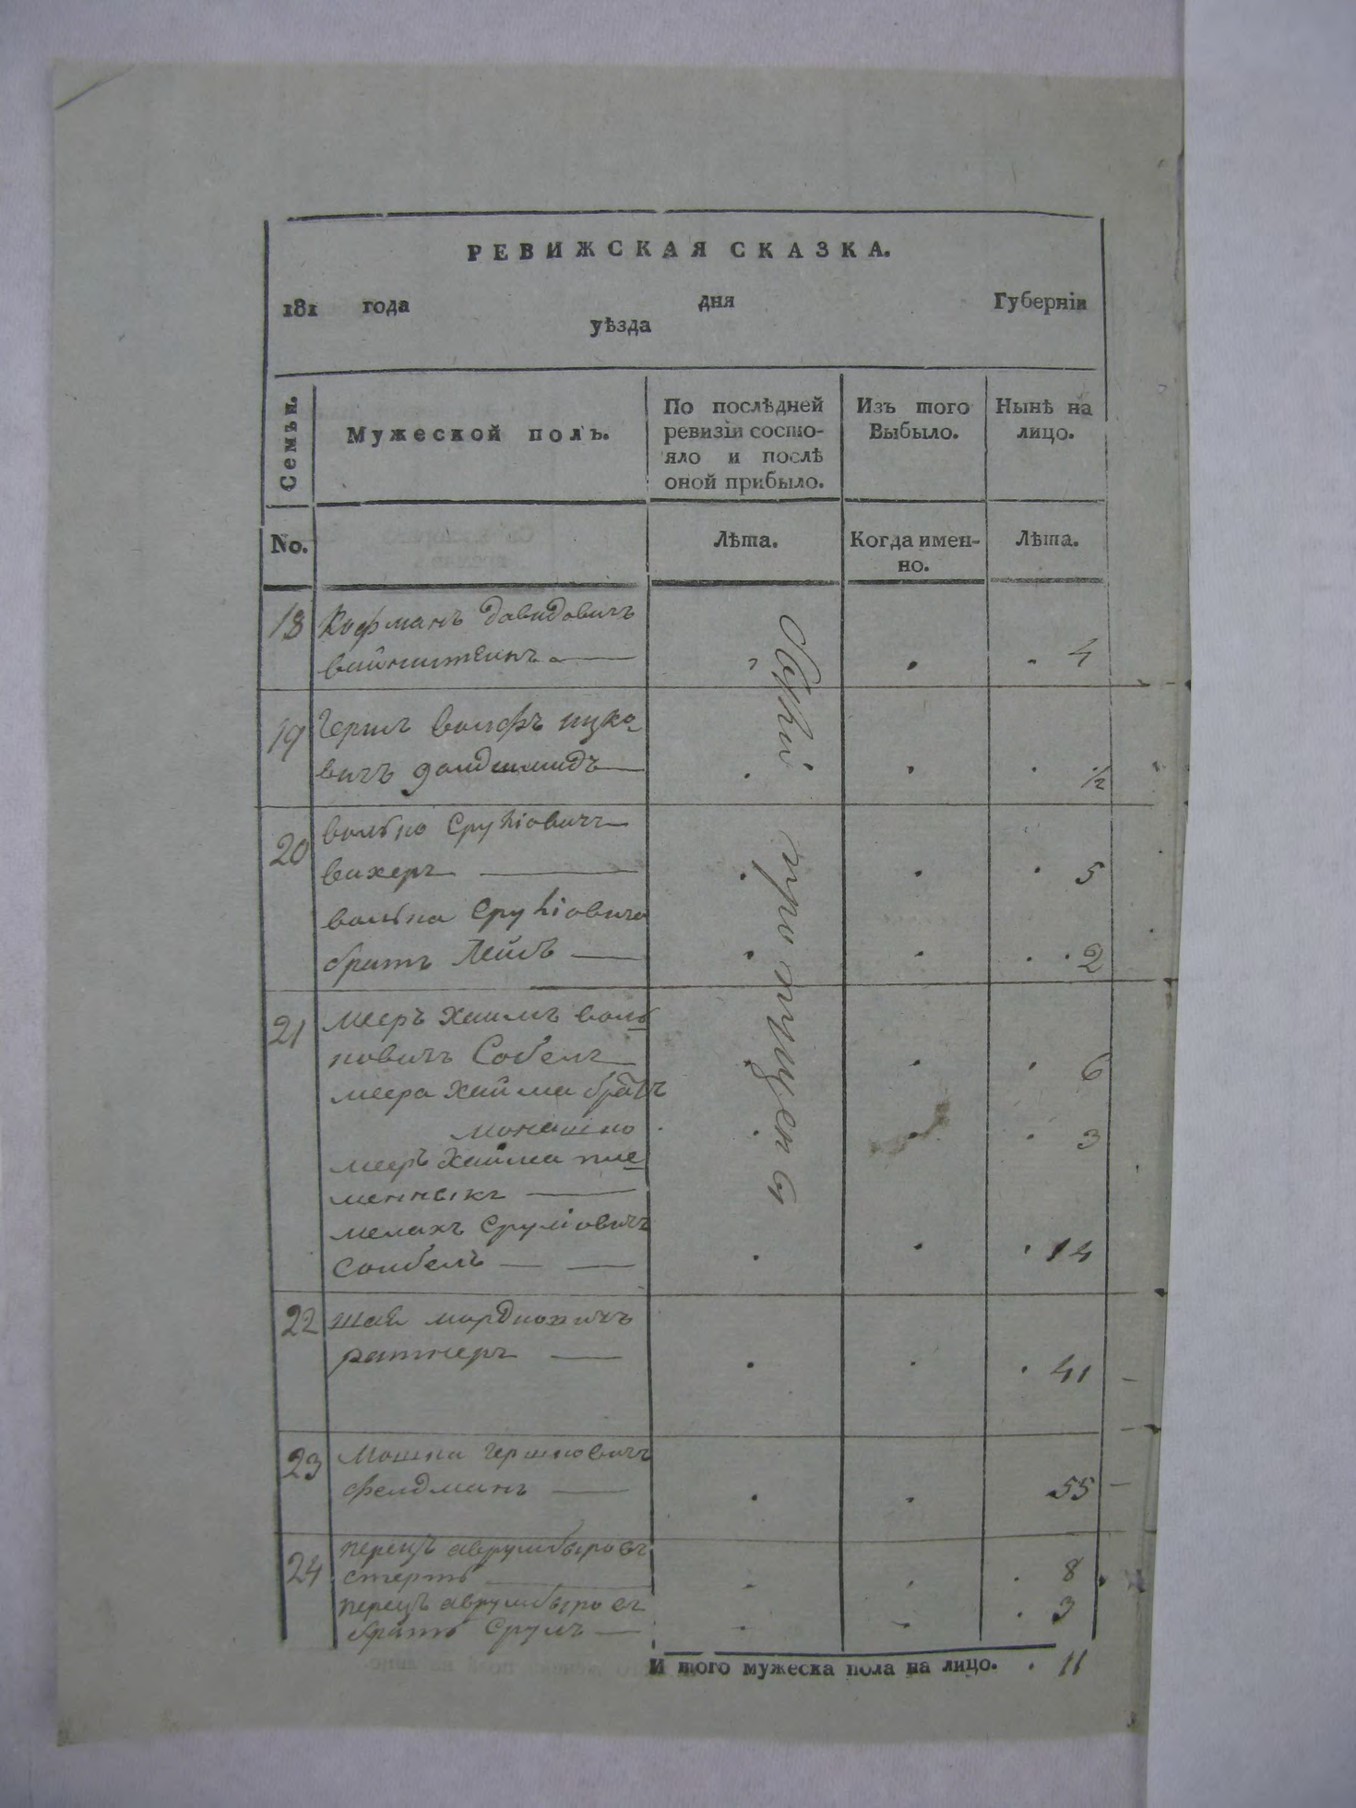 РЕВИЖСКАЯ СКАЗКА.
181 года дня Губернїи
уѣзда
Семьи.
Мужеской полъ.
По послѣдней ревизїи состо-
яло и послѣ
оной прибыло.
Изъ того
Выбыло.
Нынѣ на
лицо.
No.
Лѣта.
Когда имен-
но.
Лѣта.
18 Кофманъ Давидовичъ
вайнштеинъ 4
19 Гершъ волфъ ицко
вичъ голдшмидъ 1/2
20 волько Срулiовичъ
вахеръ 5
волька Срулiовича
братъ Лейбъ 2
21 мееръ Хаимъ воль
ковичъ Собелъ 6
меера Хайма братъ
монашко 3
мееръ Хайма пле
менникъ
мелахъ Срулiовичъ
Соибелъ 14
22 шая мордковичъ
ратнеръ 41
23 Мошко гершковичъ
фелдманъ 55
24 перецъ аврумберовъ
стерть 8
перецъ аврумберовъ
братъ Срулъ 3
пропущены
И того мужеска пола на лицо. 11